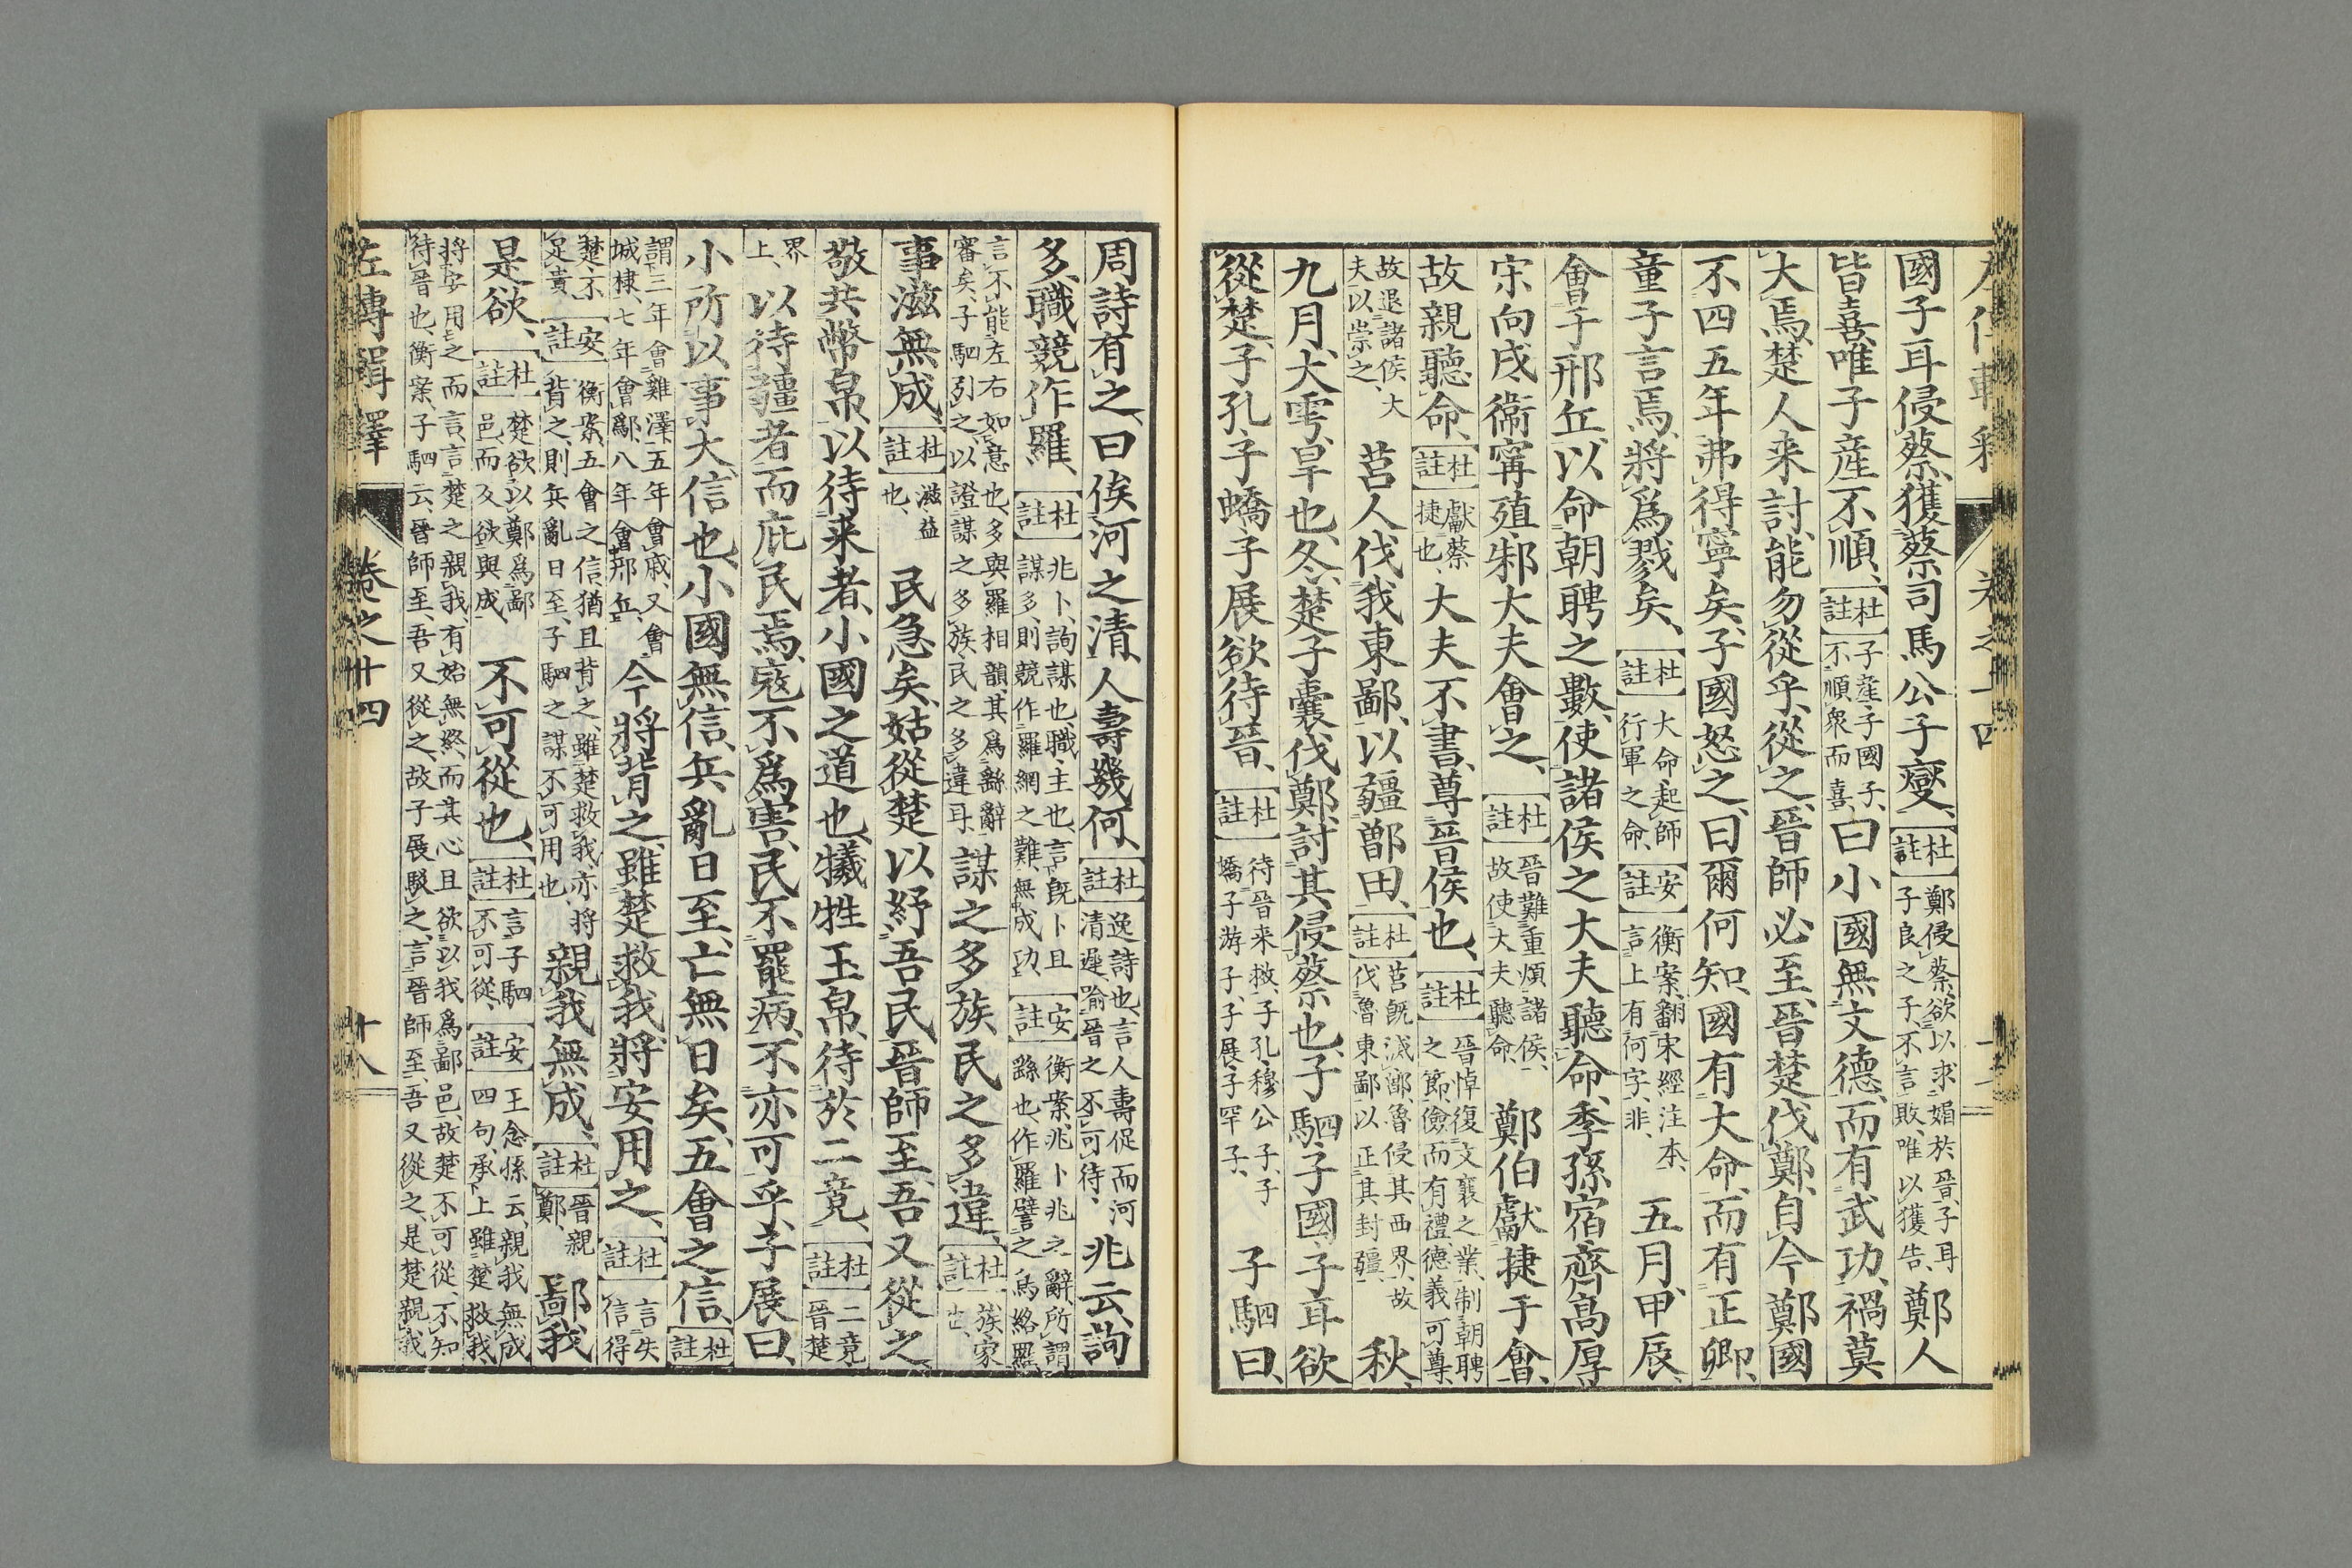 國子耳侵蔡獲蔡司馬公子燮、【杜註】鄭侵蔡、欲以求媚於晉、子耳子良之子、不言敗、唯以獲告、鄭人
皆喜、唯子產不順、【杜註】子產、子國子、不順衆而喜、曰小國無文德、而有武功、禍莫
大焉、楚人来討、能勿從乎、從之、晉師必至、晉楚伐鄭、自今鄭國
不四五年、弗得寧矣、子國怒之、曰爾何知、國有大命、而有正卿、
童子言焉、將爲戮矣、【杜註】大命、起師行軍之命、【安註】衡案、翻宋經注本、言上有何字、非、五月、甲辰、
會于邢丘、以命朝聘之數、使諸侯之大夫聽命、季孫宿、齊高厚、
宋向戌、衞甯殖、邾大夫會之、【杜註】晉難重煩諸侯、故使大夫聽命、鄭伯獻捷于會、
故親聽命、【杜註】獻蔡捷也、大夫不書、尊晉侯也、【杜註】晉悼復文襄之業、制朝聘之節、儉而有禮、德義可尊、
故退諸侯大夫以崇之、莒人伐我東鄙、以疆鄫田、【杜註】莒旣滅鄫、魯侵其西界、故伐魯東鄙、以正其封疆、秋、
九月、大雩、旱也、冬、楚子囊伐鄭、討其侵蔡也、子駟子國子耳欲
從楚、子孔子蟜子展欲待晉、【杜註】待晉来救、子孔、穆公子、子蟜、子游子、子展、子罕子、子駟曰、
周詩有之、曰俟河之清、人壽幾何、【杜註】逸詩也、言人壽促而河清遲、喻晉之不可待、兆云詢
多、職競作羅、【杜註】兆、卜、詢、謀也、職、主也、言旣卜且謀多、則競作羅網之難、無成功、【安註】衡案、兆卜、兆之辭、所謂繇也、作羅、譬之爲絡羅、
言不能左右如意也、多與羅相韻、其爲繇辭審矣、子駟引之、以證謀之多族、民之多違耳、謀之多族、民之多違、【杜註】族、家也、
事滋無成、【杜註】滋、益也、民急矣、姑從楚以紓吾民、晉師至、吾又從之、
敬共幣帛、以待来者、小國之道也、犧牲玉帛、待於二竟、【杜註】二竟、晉楚
界上、以待疆者而庇民焉、寇不爲害、民不罷病、不亦可乎、子展曰、
小所以事大、信也、小國無信、兵亂日至、亡無日矣、五會之信、【杜註】
謂三年會雞澤、五年會戚、又會城棣、七年會鄬、八年會邢丘、今將背之、雖楚救我、將安用之、【杜註】言失信得
楚、不足貴、【安註】衡案、五會之信、猶且背之、雖楚救我、亦將背之、則兵亂日至、子駟之謀、不可用也、親我無成、【杜註】晉親鄭、鄙我
是欲、【杜註】楚欲以鄭爲鄙邑、而反欲與成、不可從也、【杜註】言子駟不可從、【安註】王念孫云、親我無成四句、承上雖楚救我、
將安用之而言、言楚之親我、有始無終、而其心且欲以我爲鄙邑、故楚不可從、不知
待晉也、衡案、子駟云、晉師至、吾又從之、故子展駁之、言晉師至、吾又從之、是楚親我
左傳輯釋　卷之十四　十八